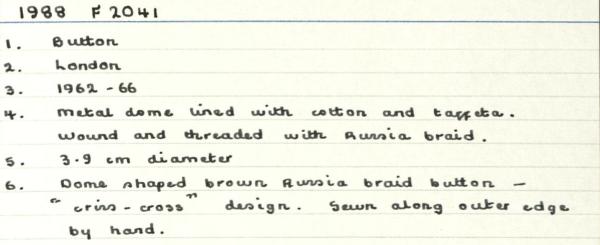 1988 F 2041
1. Button
2. London
3. 1962-66
4. Metal dome lined with cotton and taffeta.
Wound and threaded with Russia braid.
5. 3.9 cm diameter
6. Dome shaped brown Russia braid button -
"criss-cross" design. Sewn along outer edge
by hand.